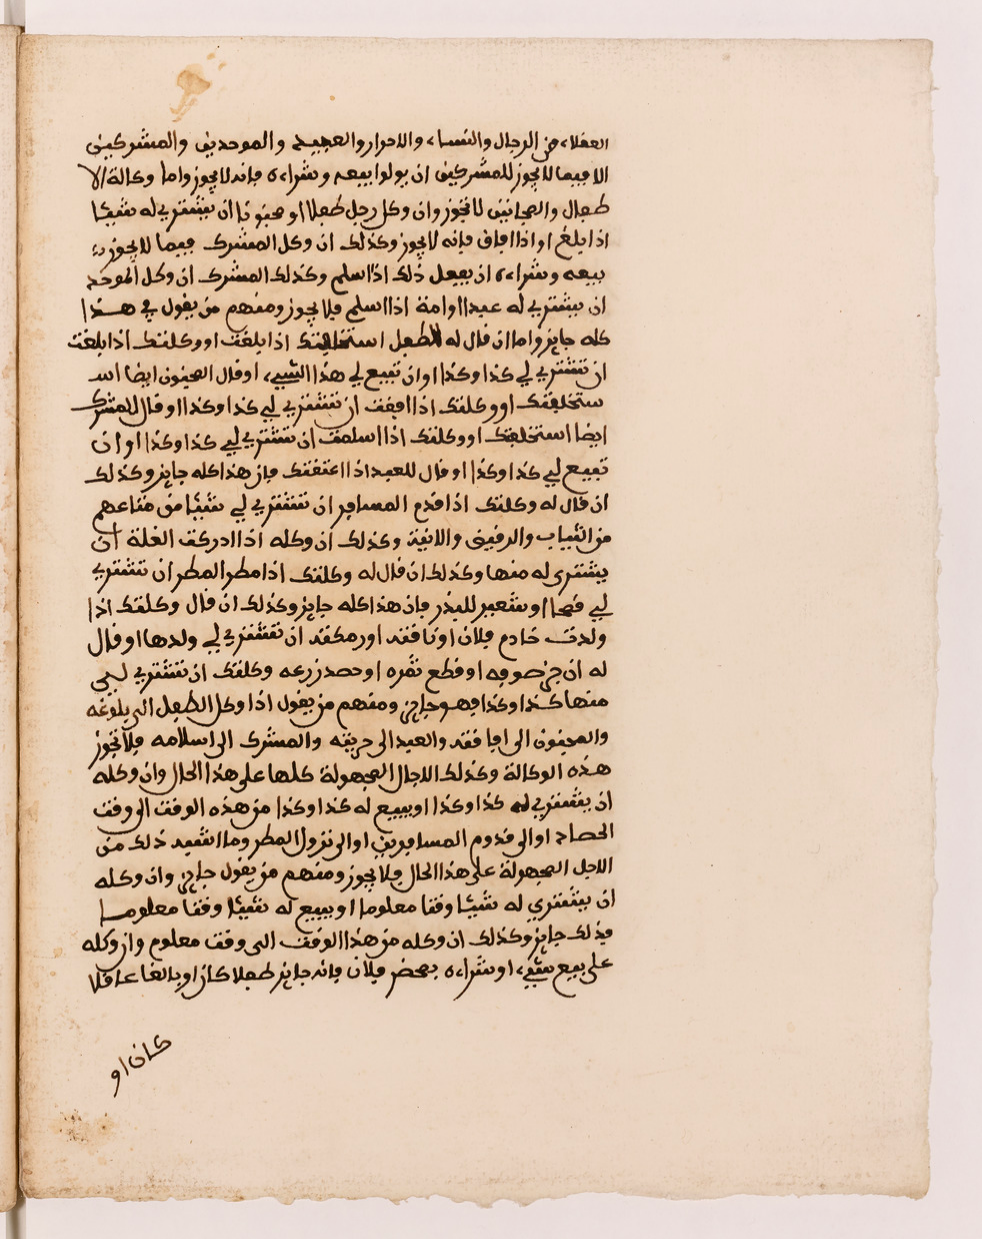 العقلاء من الرجال والنساء والاحرار والعبيد والموحدين والمشركين
الا فيما لا يجوز للمشركين ان يولوا بيعه وشراءه فإنه لا يجوز واما وكالة الا
طفال والمجانين لا تجوز وان وكل رجل طفلا او مجنونا ان يشتري له شيئا
اذا بلغ او اذا افاق فإنه لا يجوز وكذلك ان وكل المشرك فيما لا يجوز
بيعه وشراءه ان يفعل ذلك اذا اسلم وكذلك المشرك ان وكل الموحد
ان يشتري له عبدا او امة اذا اسلم فلا يجوز ومنهم من يقول في هذا
كله جايز واما ان قال له الطفل استخلفتك اذا بلغت او وكلتك اذا بلغت
ان تشتري لي كذا وكذا او ان تبيع لي هذا الشيء او قال المجنون ايضا اسـ
ستخلفتك او وكلتك اذا افقت ان تشتري لي كذا وكذا او قال للمشرك
ايضا استخلفتك او وكلتك اذا اسلمت ان تشتري لي كذا وكذا او ان
تبيع لي كذا وكذا او قال للعبد اذا اعتقتك فإن هذا كله جايز وكذلك
ان قال له وكلتك اذا قدم المسافر ان تشتري لي شيئا من متاعهم
من الثياب والرقيق والانية وكذلك ان وكله اذا ادركت الغلة ان
يشتري له منها وكذلك ان قال له وكلتك اذا مطر المطر ان تشتري
لي قمحا او شعير للبذر فإن هذا كله جايز وكذلك ان قال وكلتك اذا
ولدت خادم فلان او ناقته او رمكته ان تشتري لي ولدها او قال
له ان جز صوفه او قطع ثمره او حصد زرعه وكلتك ان تشتري لي
منها كذا وكذا فهو جايز ومنهم من يقول اذا وكل الطفل الى بلوغه
والمجنون الى افاقته والعبد الى حريته والمشرك الى اسلامه فلا تجوز
هذه الوكالة وكذلك الاجال المجهولة كلها على هذا الحال وان وكله
ان يشتري له كذا وكذا او يبيع له كذا وكذا من هذه الوقت الى وقت
الحصاد او الى قدوم المسافرين او الى نزول المطر وما اشبه ذلك من
الاجل المجهولة على هذا الحال فلا يجوز ومنهم من يقول جايز وان وكله
ان يشتري له شيئا وقتا معلوما او يبيع له شيئا وقتا معلوما
فذلك جايز وكذلك ان وكله من هذا الوقت الى وقت معلوم وان وكله
على بيع شيء او شراءه بمحضر فلان فإنه جايز طفلا كان او بالغا عاقلا
كان او